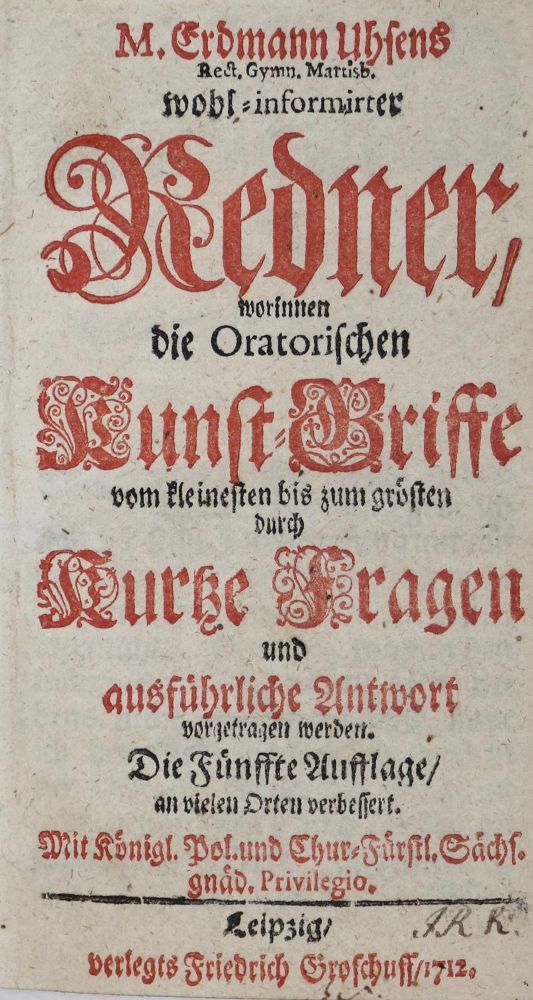 M. Erdmann Uhsens
Rect. Gymn. Martisb.
wohl-informirter
Redner/
worinnen
die Oratorischen
Kunst-Griffe
vom kleinesten bis zum grösten
durch
Kurtze Fragen
und
ausführliche Antwort
vorgetragen werden.
Die Fünffte Aufflage/
an vielen Orten verbessert.
Mit Königl. Pol. und Chur-Fürstl. Sächs.
gnäd. Privilegio.
Leipzig/
verlegts Friedrich Groschuff/1712.